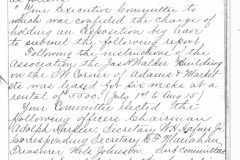 Your Executive Committee to
which was confided the charge of
holding an exposition beg leave
to submit the following report
Following the instructions of the
Association the Jas H Walker Building
on the S W Corner of Adams & Market
sts was leased for six weeks at a
rental of July 1st to Aug 15
Your Committee elected the
following officers Chairman
Adolph Secretary W H Jr
Corresponding Secretary E P
Treasurer Nels Johnson Sub Committees